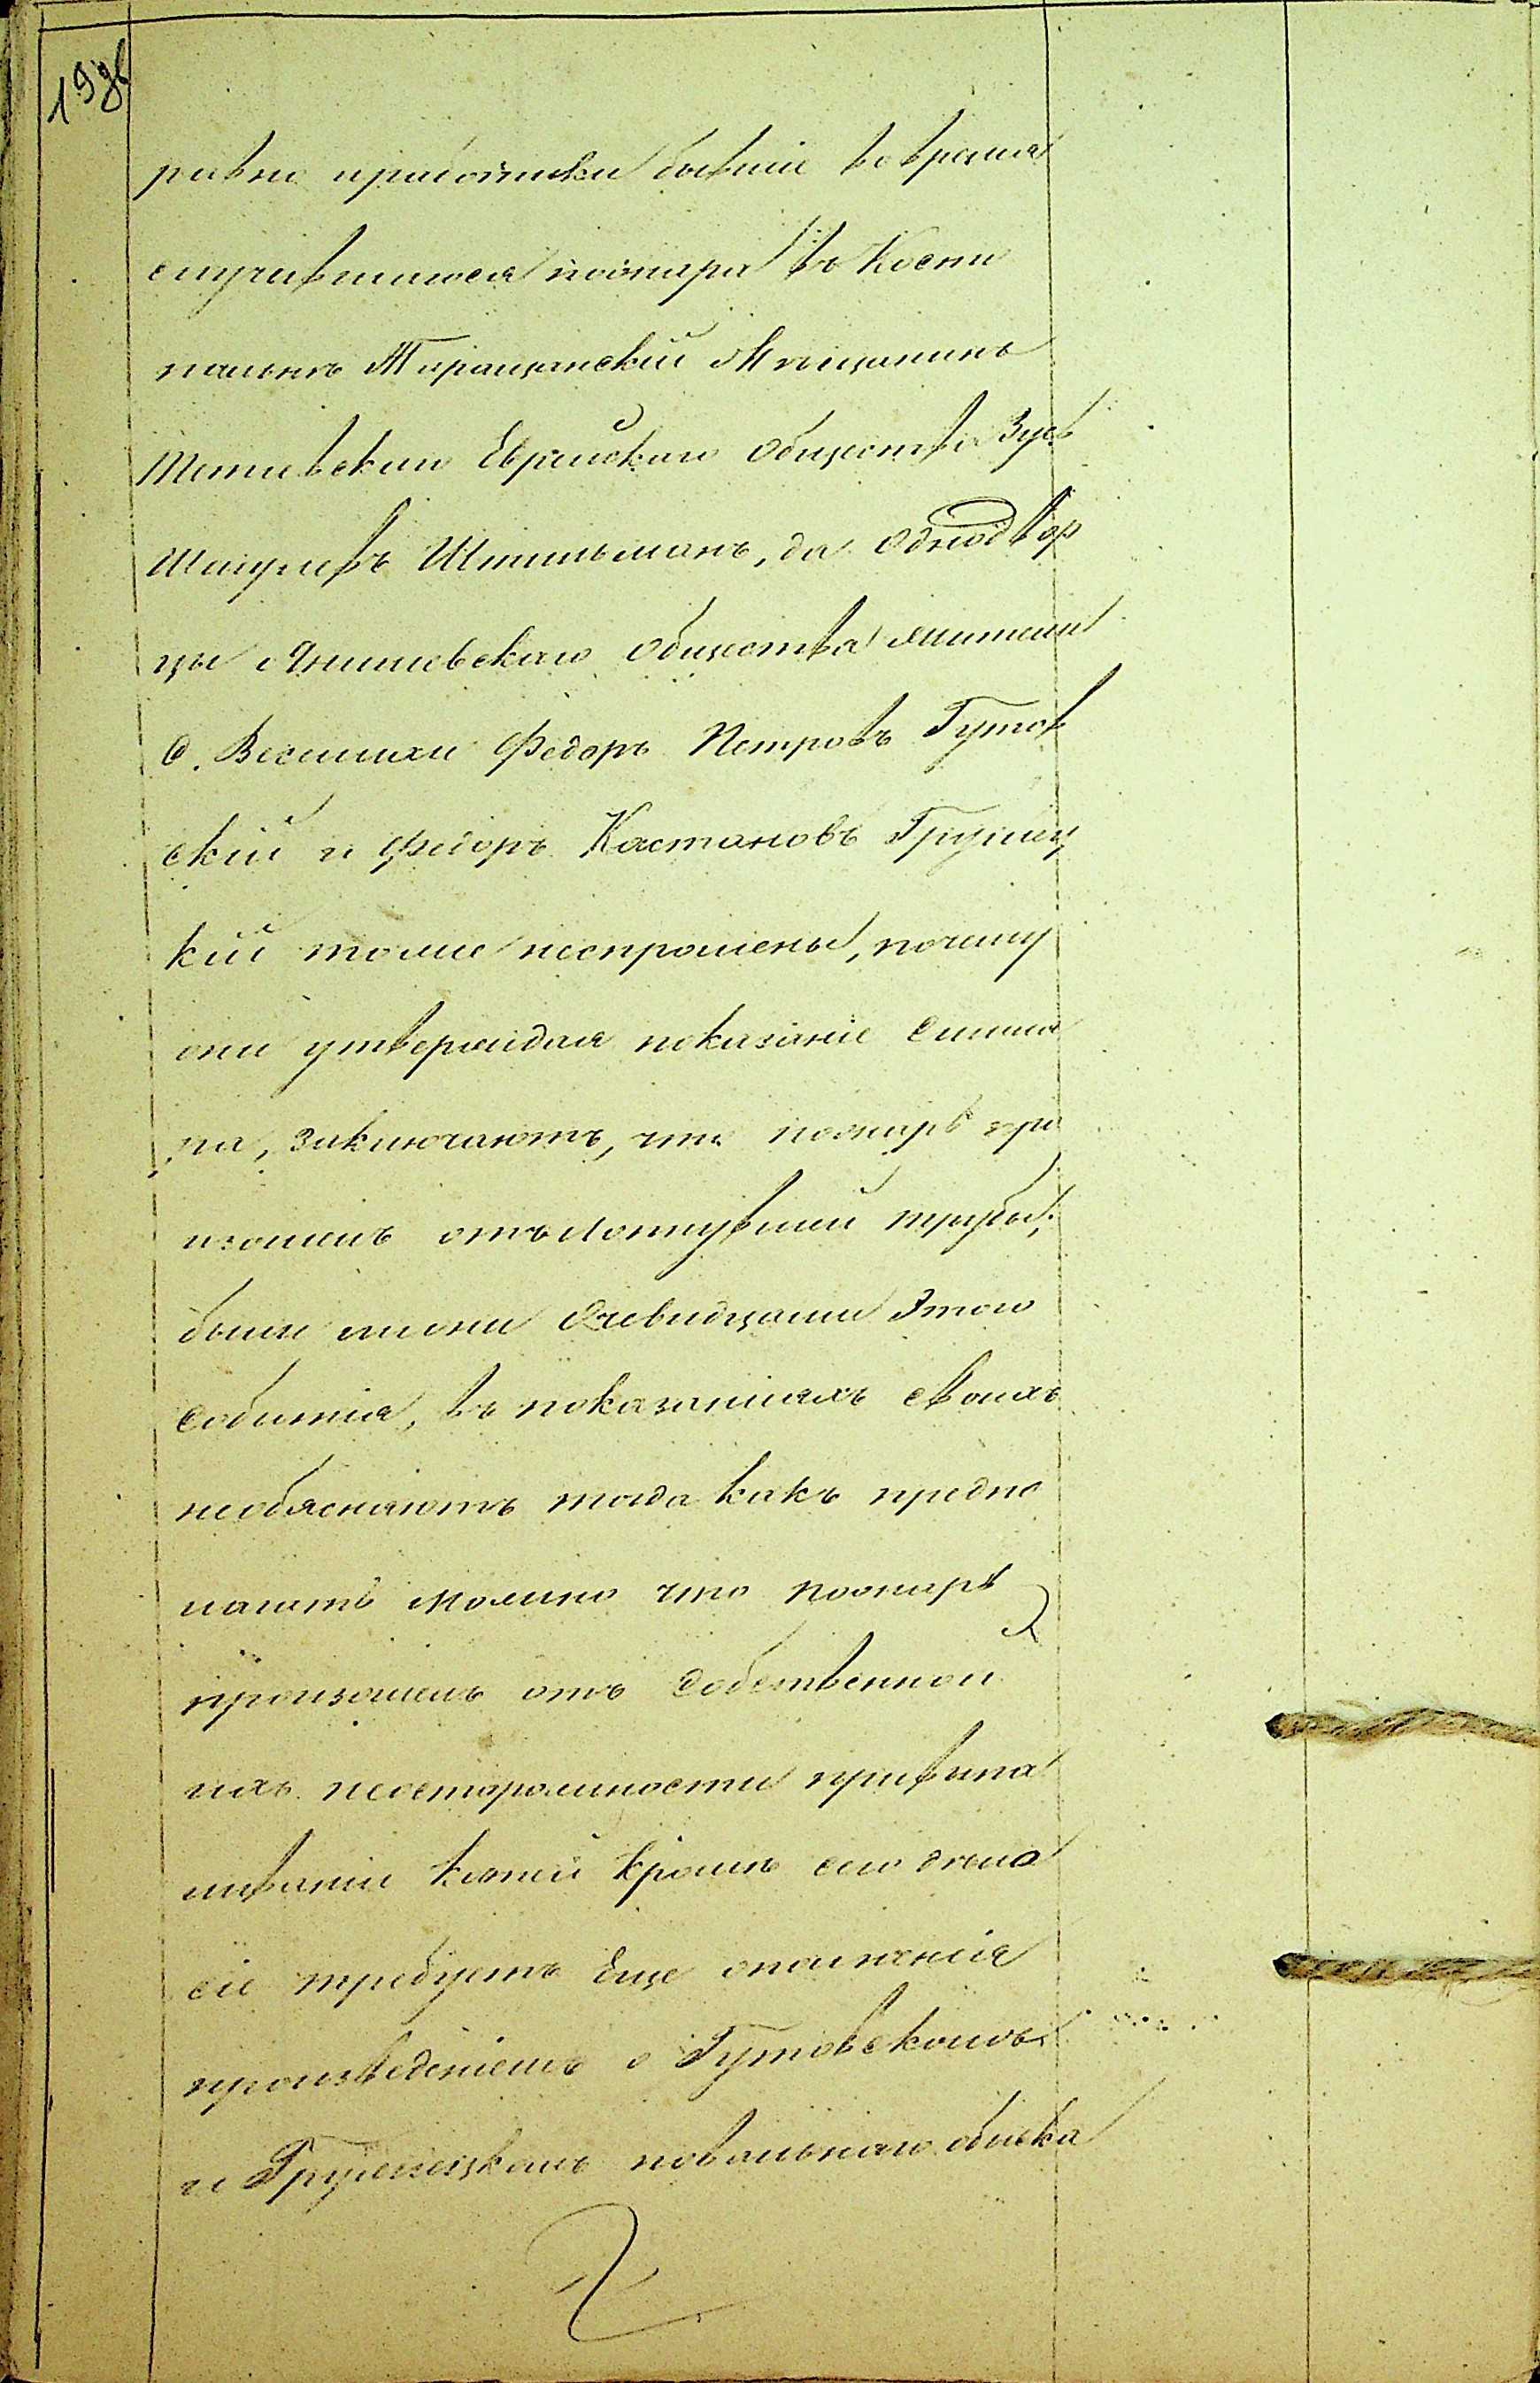 равно и работники бывшіе во время
случившагося пожара въ Кости
пальнѣ Таращанскій Мѣщанинъ
Тетіевскаго Еврейскаго Общества Зусь
Шмулевъ Штильманъ, да Однодвор
цы Янишевскаго Общества жители
с. Федоръ Петровъ Гутов
скій и Федоръ Кастановъ Грушец
кій тоже неспрошены, почему
они утверждая показаніе
на, заключаютъ, что пожаръ про
изошелъ отъ лопнувшей трубы;
были ли они Очевидцами Этого
событія, въ показаніяхъ своихъ
необъясняютъ тогда какъ предпо
лагать можно что пожаръ
произошелъ отъ собственной
ихъ неосторожности при выпа
ливаніи костей кромѣ сего дѣло
сіе требуетъ Еще пополненія
произведеніемъ о Гутовскомъ
и Грушецкомъ повальнаго обыска